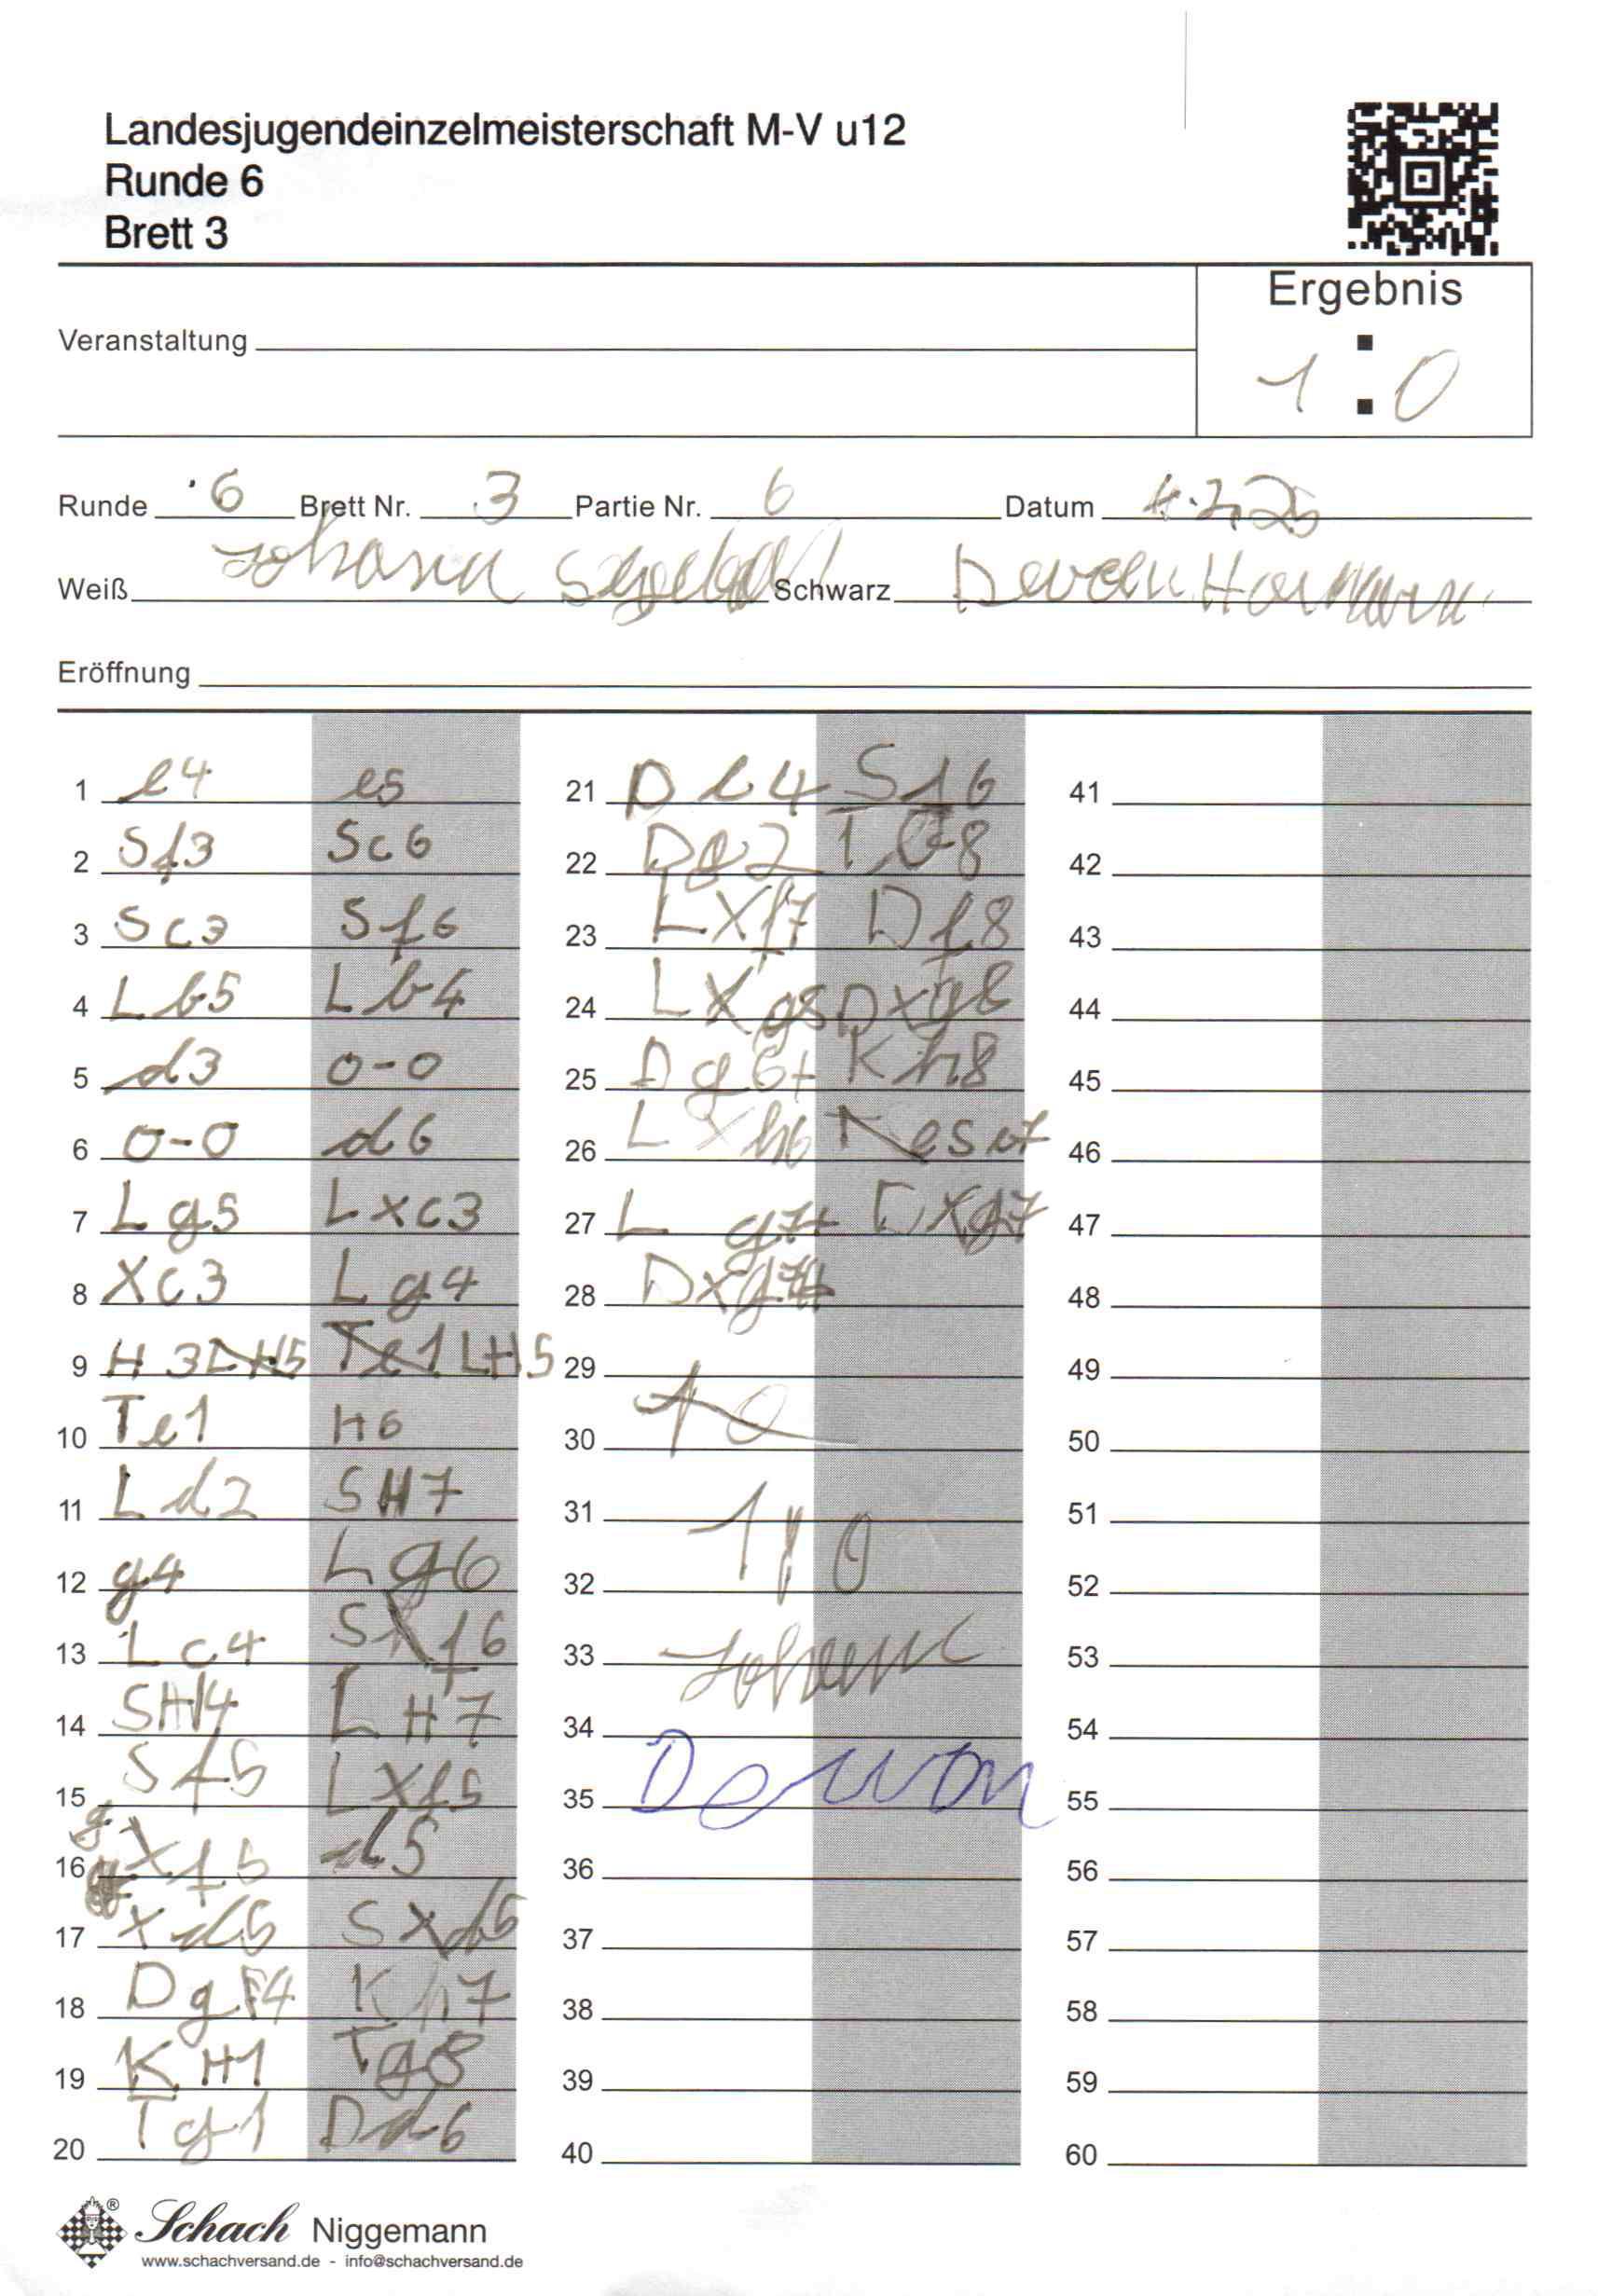 Landesjugendeinzelmeisterschaft M-V u12
Runde 6
Brett 3
Ergebnis
1 : 0
Veranstaltung
Runde 6 Brett Nr. 3 Partie Nr. 6 Datum
Weiß Johann Schwarz
Eröffnung
1 e4 e5
2 Sf3 Sc6
3 Sc3 Sf6
4 Lb5 Lb4
5 d3 0-0
6 0-0 d6
7 Lg5 Lxc3
8 Xc3 Lg4
9 H3 LH5
10 Te1 H6
11 Ld2 SH7
12 g4 Lg6
13 Lc4 Sf6
14 SH4 LH7
15 Sf5 LXf5
16 gXf5 d5
17 Xd5 SXd5
18 DgF4 Kh7
19 KH1 Tg8
20 Tg1 Dd6
21 De4 Sf6
22 Dg2 Te8
23 LXf7 Df8
24 LXg8 DXg8
25 Dg6+ Kh8
26 LXh6
27 Lg7+ DXg7
28 Dxg7#
29
30
31 1 0
32
33 Johann
34
35
36
37
38
39
40
41
42
43
44
45
46
47
48
49
50
51
52
53
54
55
56
57
58
59
60
Schach Niggemann
www.schachversand.de - info@schachversand.de